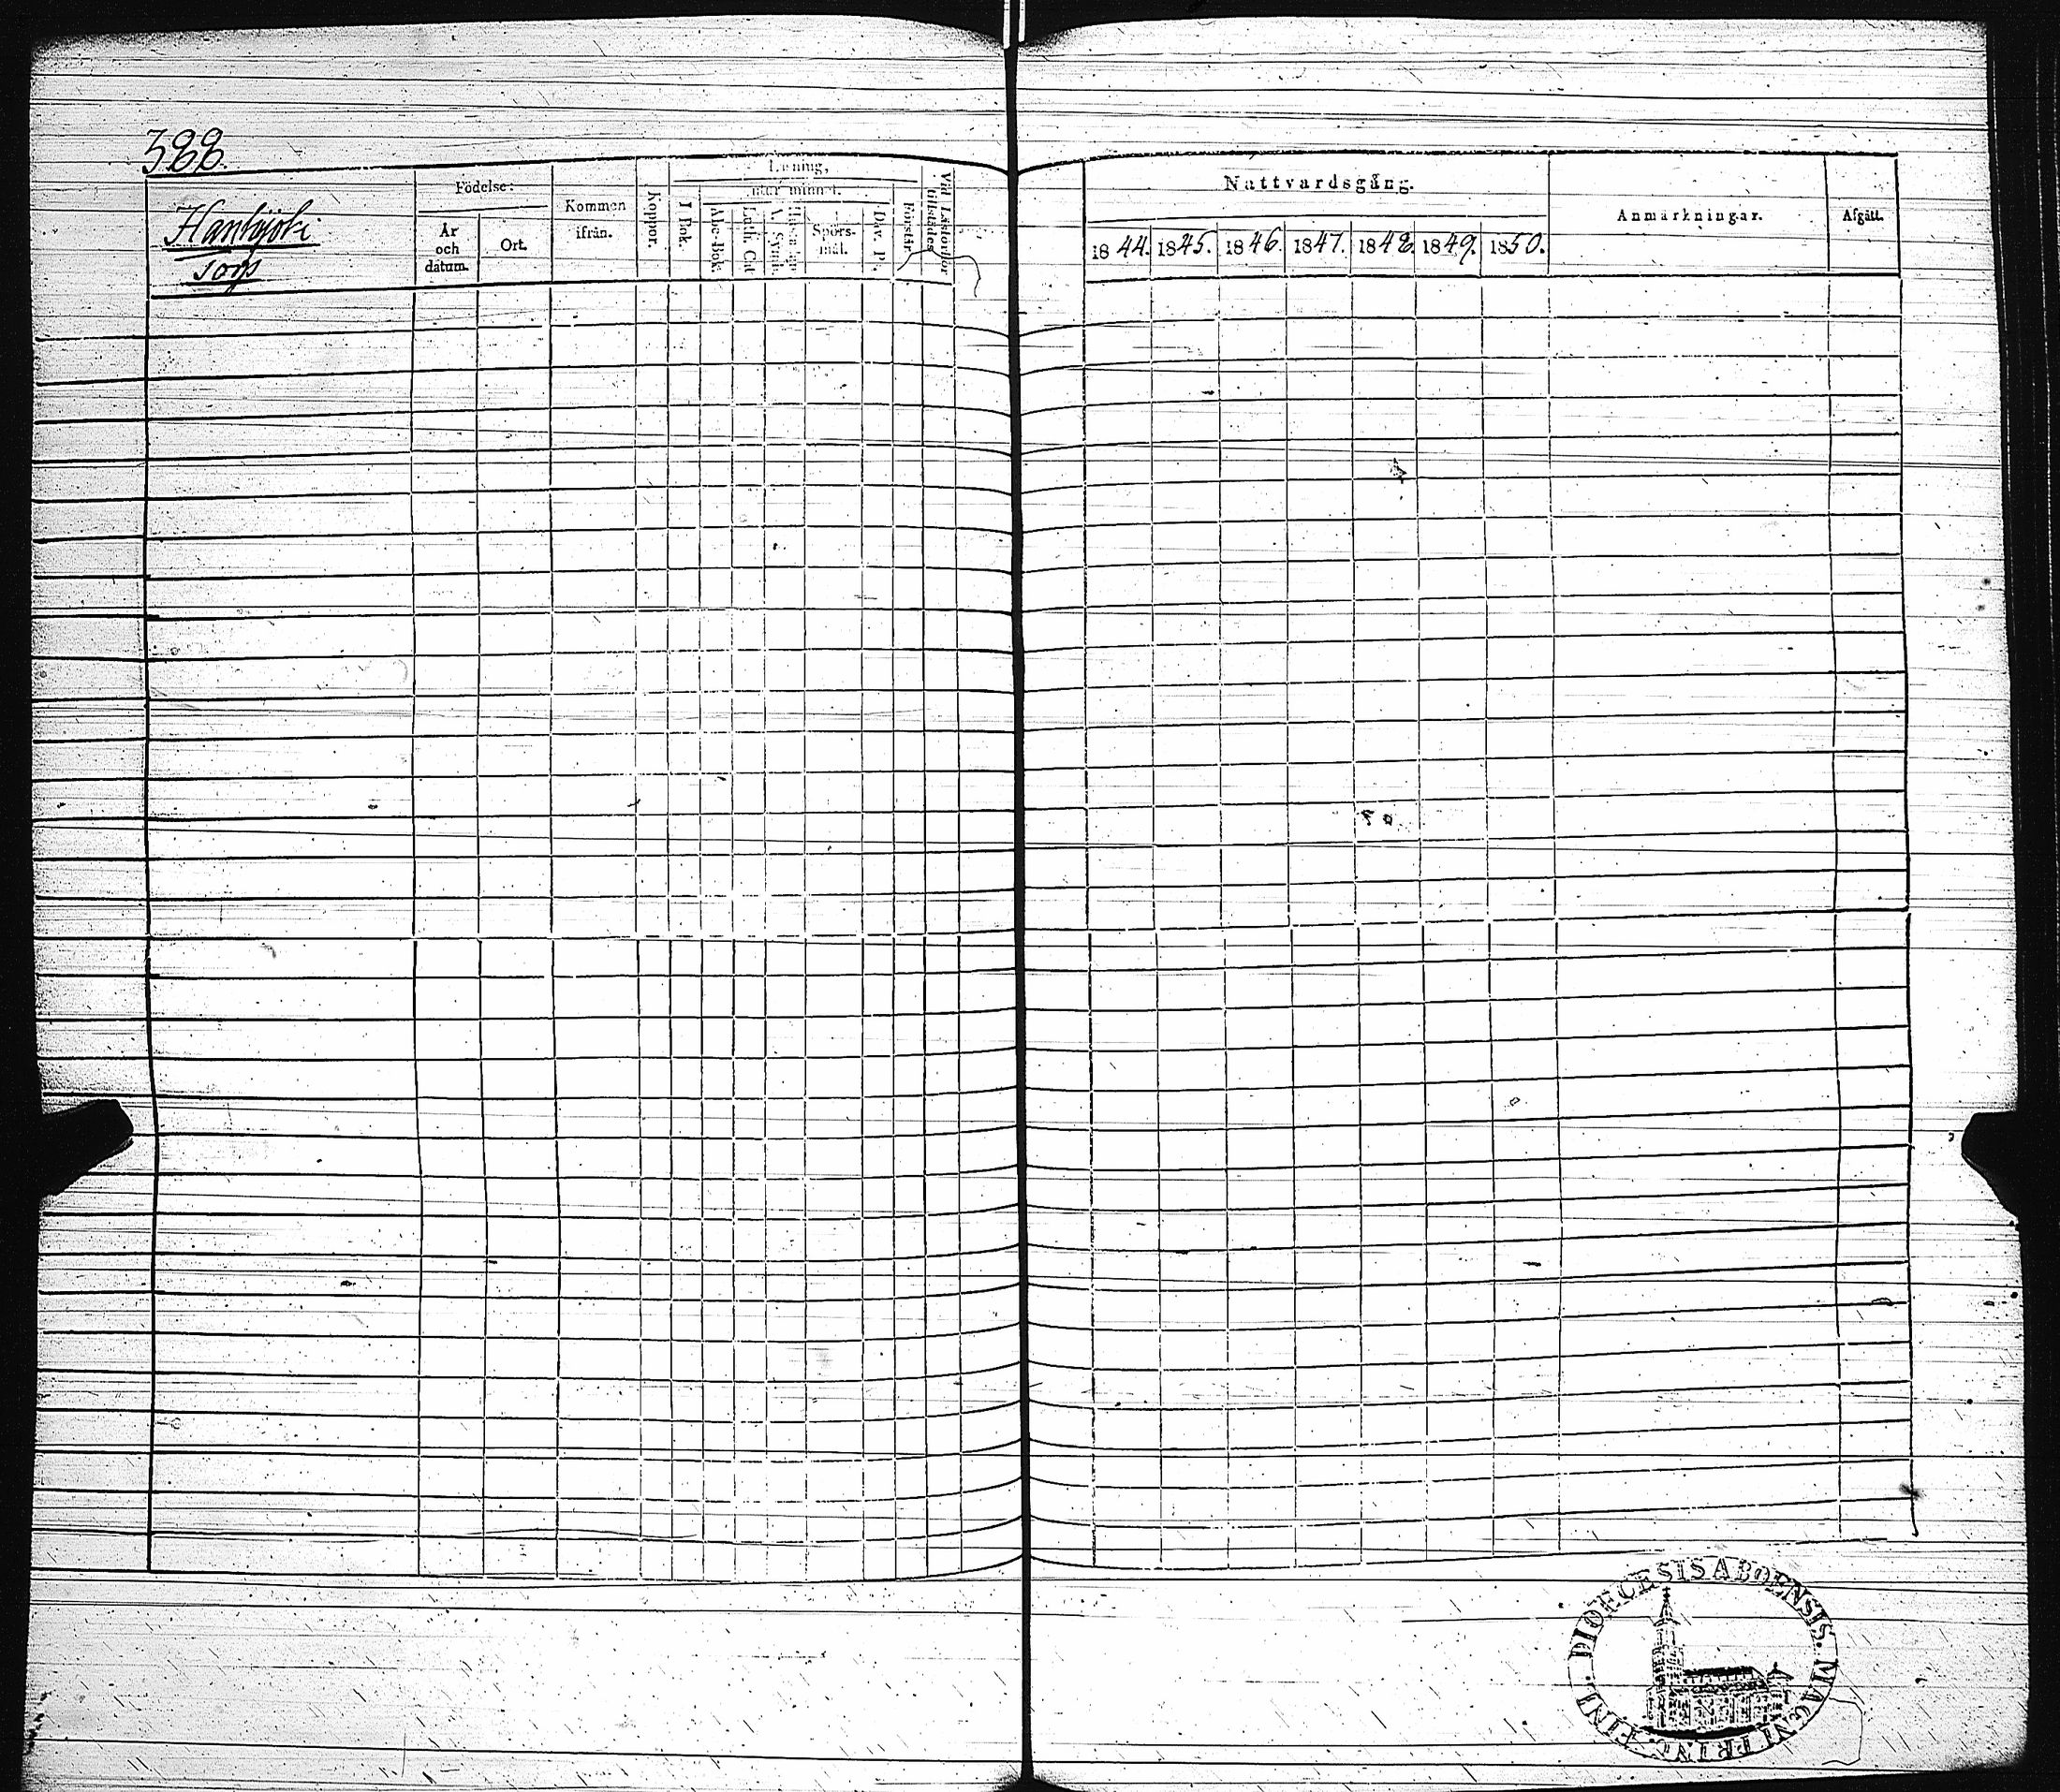 388.
Hankijoki
torp
Födelse:
År
och
datum.
Ort.
Kommen
ifrån.
Koppor.
Läsning,
utur minnet.
I Bok.
Abc-Bok.
Luth. Cat
A. Symb.
Spörs-
mål.
Dav. P.
Förstår.
Vid Läsförhör
tillstädes
Nattvardsgång.
1844. 1845. 1846. 1847. 1848. 1849. 1850.
Anmärkningar.
Afgått.
DIOECESIS ABOENSIS. MAGNI PRINC. FINL.